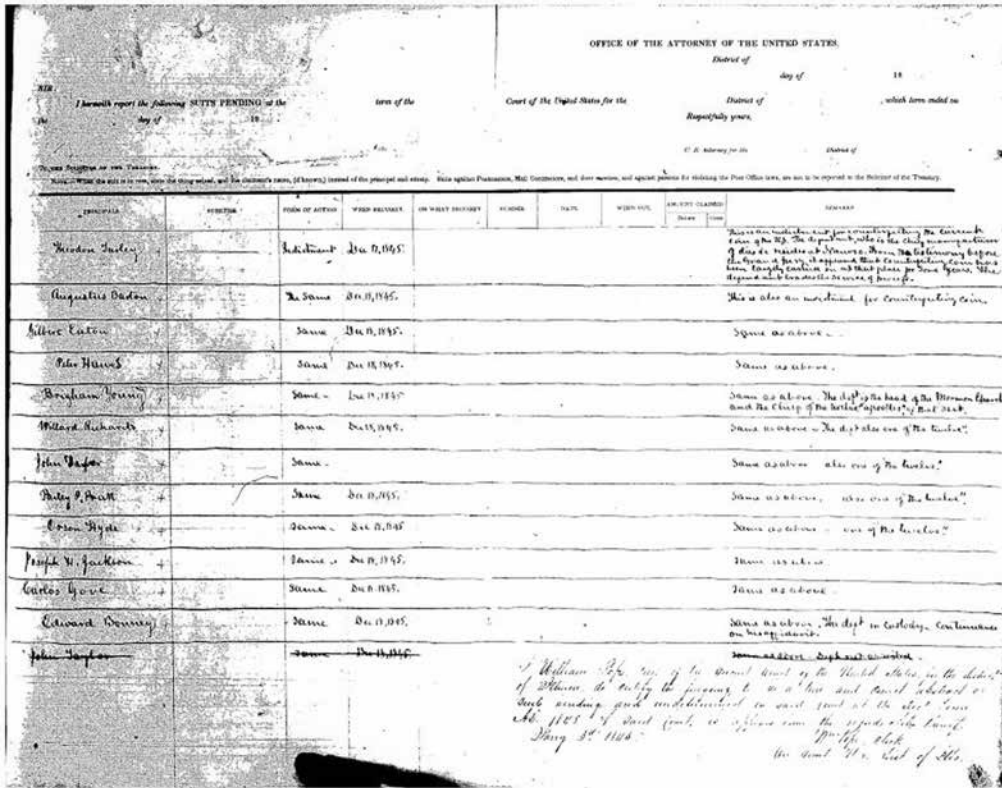 OFFICE OF THE ATTORNEY OF THE UNITED STATES,
District of
day of 18
SIR:
I herewith report the following SUITS PENDING at the term of the Court of the United States for the District of , which term ended on
the day of 18
Respectfully yours,
U. S. Attorney for the District of
TO THE SOLICITOR OF THE TREASURY.
When the suit is in rem, state the thing seized, and the claimant's name, (if known,) instead of the principal and surety. Suits against Postmasters, Mail Contractors, and their sureties, and against persons for violating the Post Office laws, are not to be reported to the Solicitor of the Treasury.
PRINCIPALS SURETIES FORM OF ACTION WHEN BROUGHT. ON WHAT BROUGHT NUMBER DATE. WHEN DUE. AMOUNT CLAIMED REMARKS
Dollars
Theodore Turley Indictment Dec 17, 1845. This is an indictment for counterfeiting the current
coin of the US. The defendant, who is the chief manufacturer
of dies &c resides at Nauvoo. From the testimony before
the Grand Jury it appeared that counterfeiting coin has
been largely carried on at that place for some years. The
defendant evades the service of process.
Augustus The Same Dec 17, 1845. This is also an indictment for counterfeiting coin
Gilbert Eaton Same Dec 17, 1845. Same as above.
Peter Hawes Same Dec 18, 1845. Same as above.
Brigham Young Same 1845 Same as above. The deft is the head of the Mormon Church
and the Chief of the twelve "apostles" of that sect.
Willard Richards Same 1845. Same as above. The deft also one of the twelve".
John Taylor Same. Same as above also one of the twelve."
Parley P. Pratt Same 1845. Same as above, also one of the twelve".
Orson Hyde Same. 1845 Same as above one of the twelve."
Joseph H. Jackson Same. 1845. Same as above
Carlos Gove Same 1845. Same as above.
Edward Bonney Same 1845. Same as above. The deft in custody. Continuance
on his affidavit.
John Taylor Same 1845 Same as above. Deft not arrested.
I William Pope, of the circuit court of the United States, in the district
of Illinois, do certify the foregoing to be a true and correct abstract of
suits pending and undetermined in said court at the Term
AD. 1845 of said Court, as appears from the records
3d 1846
Wm Pope, Clerk